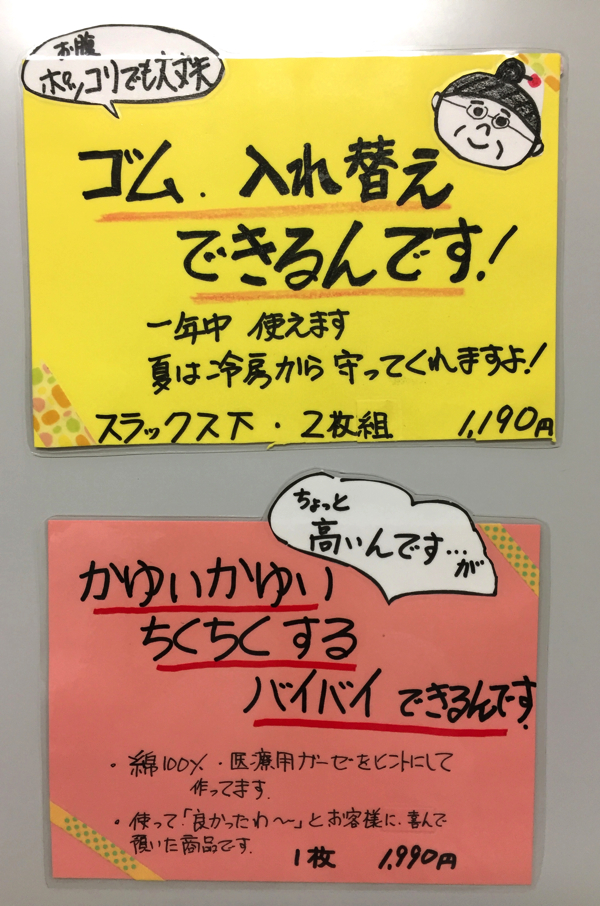 お腹
ポッコリでも大丈夫
ゴム、入れ替え
できるんです!
一年中 使えます
夏は冷房から守ってくれますよ!
スラックス下・2枚組 1,190円
ちょっと
高いんです…が
かゆいかゆい
ちくちくする
バイバイできるんです.
・綿100%・医療用ガーゼをヒントにして
作ってます.
・使って「良かったわ〜」とお客様に、喜んで
頂いた商品です.
1枚 1,990円